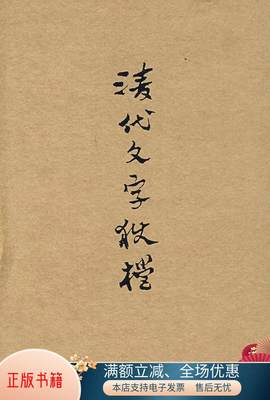 清代文字狱檔
正版书籍
满额立减、全场优惠
本店支持电子发票 售后无忧